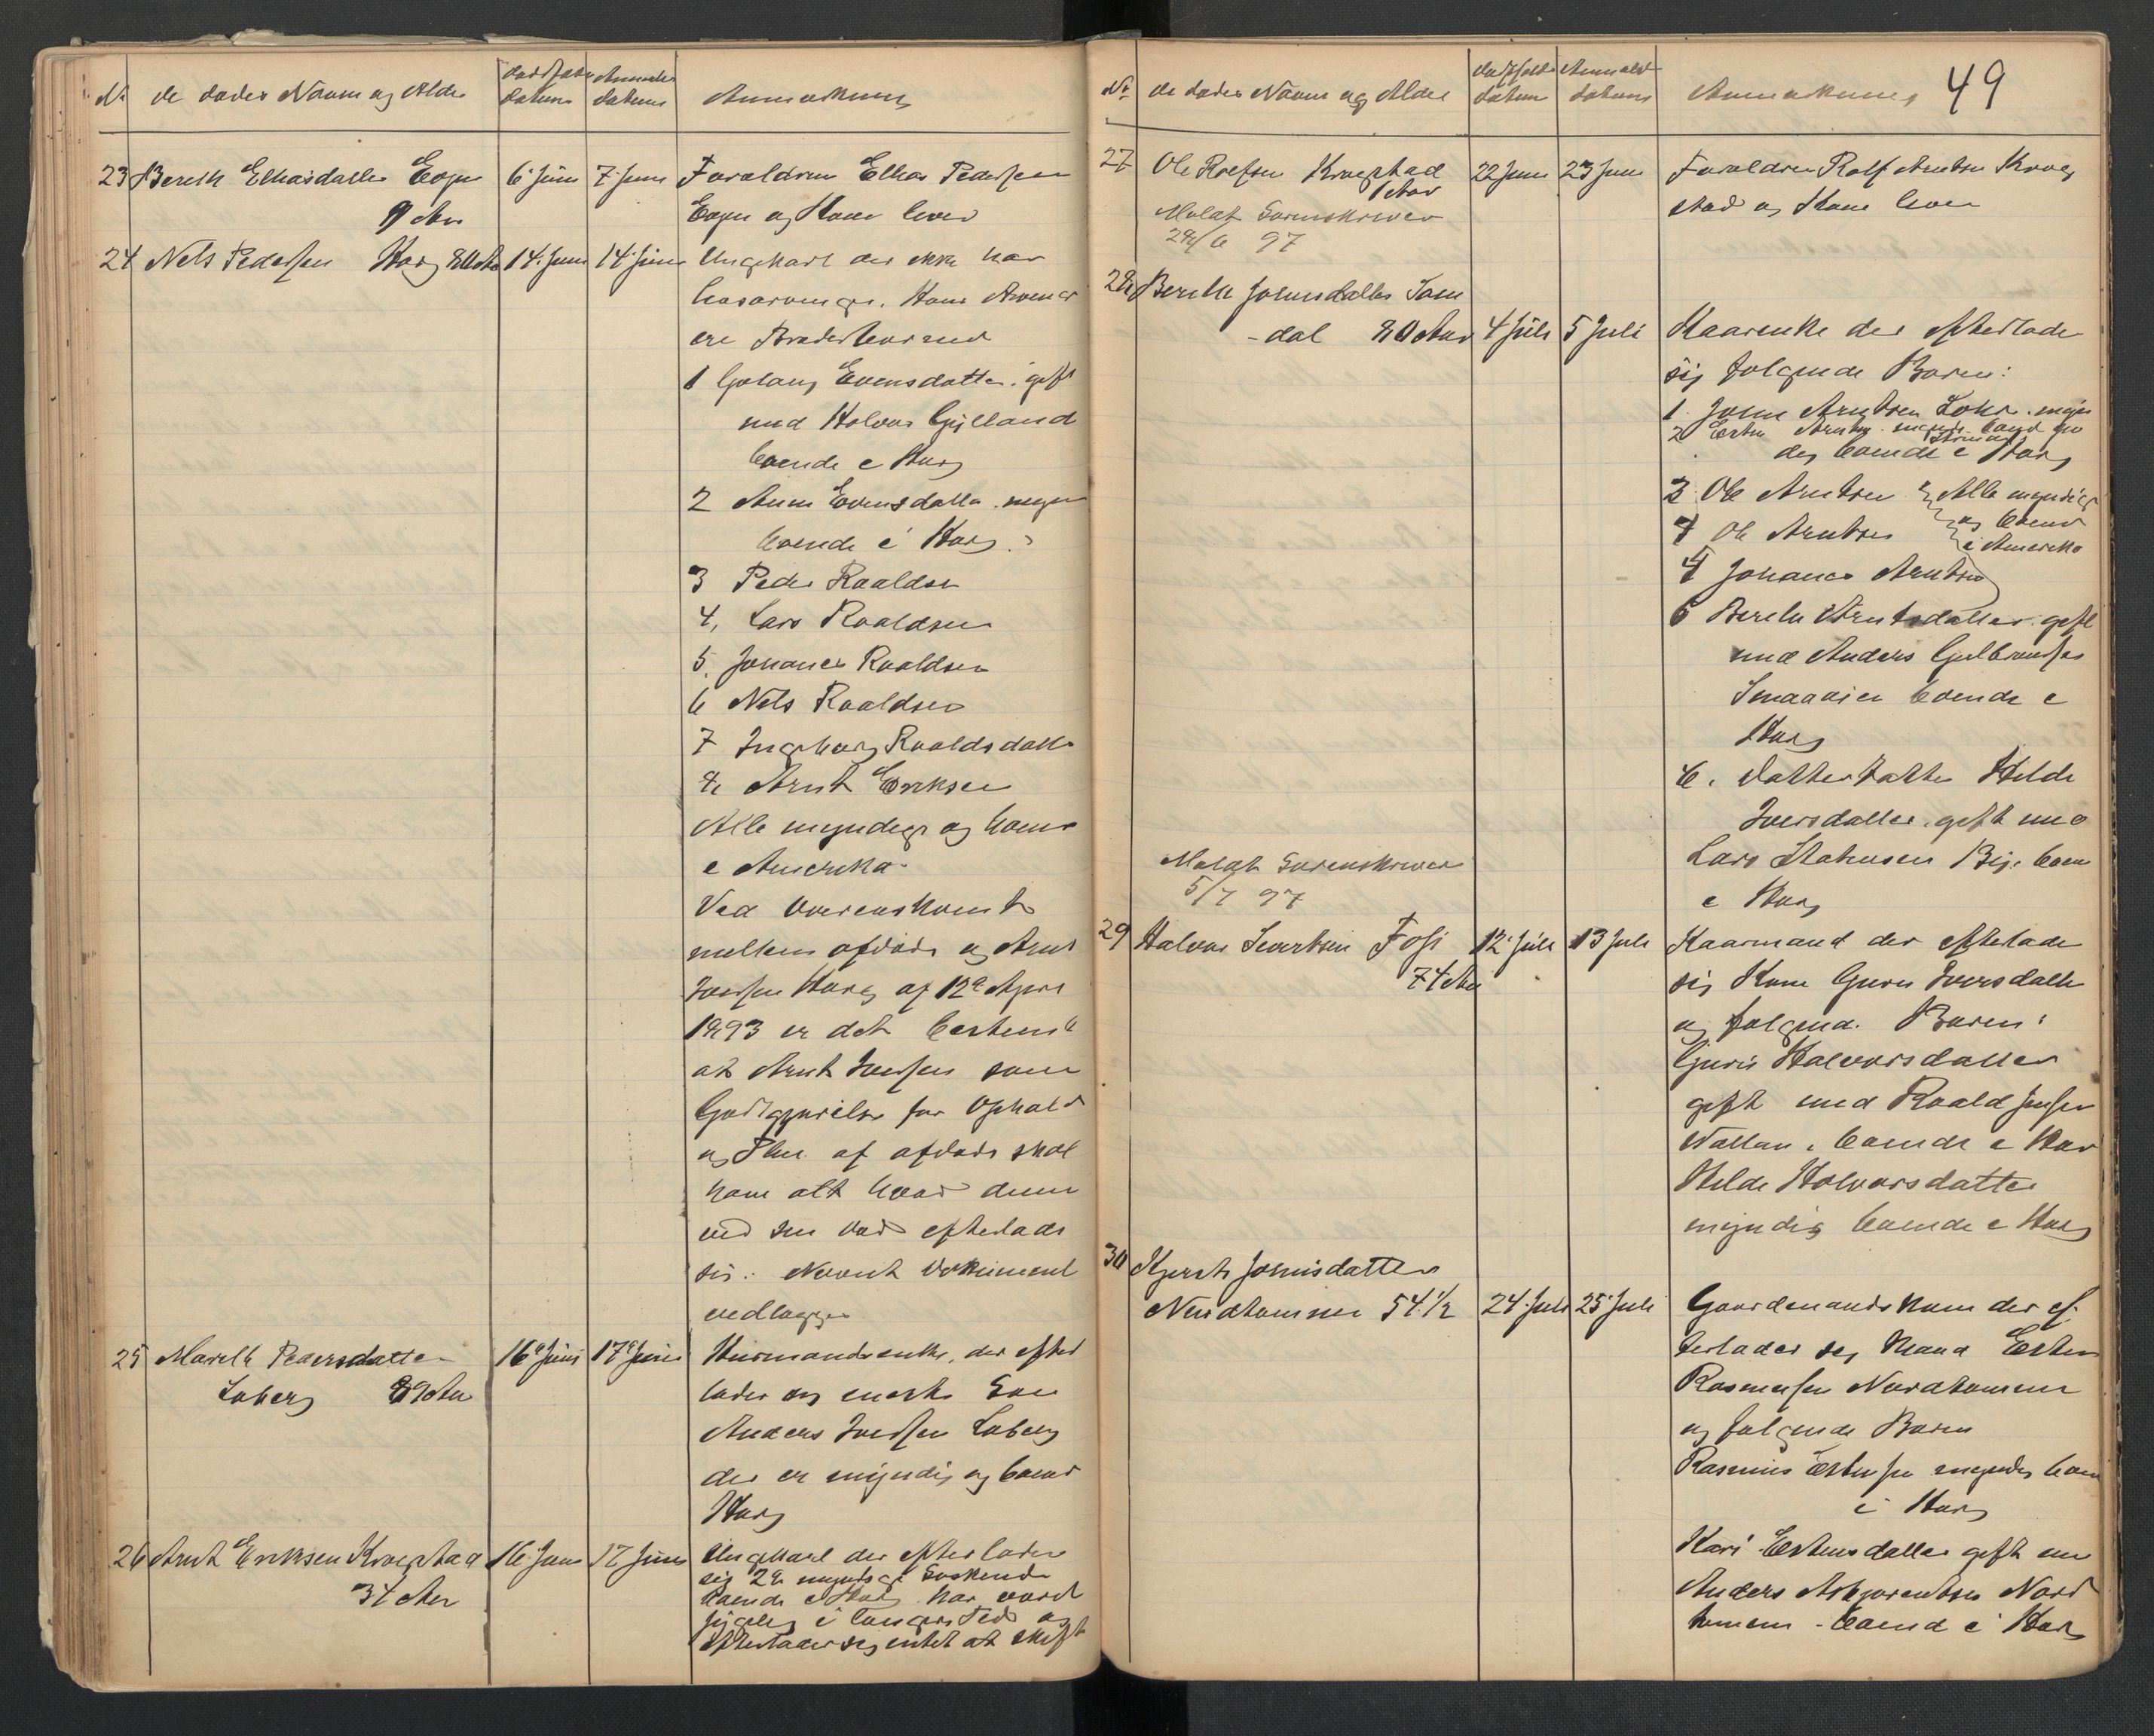 No de dødes Navn og Alder
Dødsfalds datum
Anmeldt datum
Anmerkning
23 Bereth Eliasdatter Eogn 6 Juni 7 Juni Foraldrene Elias Pedersen
9 Aar Eogn og Kone lever
24 Nels Pedersen Horg 80 Aar 14. Juni 14 Juni Ungekarl der ikke har
Livsarvinger. Hans Arvinger
ere Broderbørn
1 Golaug Evensdatter. gift
med Halvor Gylland
boende i Horg
2 Anne Evensdatter. mynd
boende i Horg.
3 Peder Roaldsen
4, Lars Roaldsen
5. Johanes Roaldsen
6 Nels Roaldsen
7 Ingeborg Roaldsdatter
8 Arnt Eriksen
Alle myndige og boende
i Amerika.
Ved Overenskomst
mellem afdøde og Arnt
Iversen Horg af 12te April
1893 er det bestemt
at Arnt Iversen som
Godtgjørelse for Ophold
og Pleie af afdøde skal
have alt hvad denne
ved sin Død efterlader
sig. Nevnt Dokument
vedlægges
25 Mareth Pedersdatter 16de Juni 17de Juni Husmandsenke, der efter
Loberg 89 Aar lader sig eneste Søn
Anders Iversen Loberg
der er myndig og boend
Horg
26 Arnt Eriksen Krogstad 16 Juni 17 Juni Ungekarl der efterlader
34 Aar sig 2 myndige Søskende
boende i Horg har været
sygelig i længere Tid og
efterlader sig intet at skifte
49
Nr. de dødes Navne og Alder
Dødsfalds datum
Anmeldt datum
Anmerkning
27 Ole Rolfsen Krogstad 22 Juni 23 Juni Foraldre Rolf Arntsen Krog
1 Aar stad og Kone lever
Meldt Sorenskriver
24/6 97
28 Bereth Johnsdatter Som
-dal 80 Aar 4 Juli 5 Juli Kaarenke der efterlader
sig følgende Børn:
1. John Arntsen myn
2 Esten Arntsen myndig
dig boende i Horg
3 Ole Arntsen Alle myndige
4 Ole Arntsen og boend
i Amerika
5 Johanes Arntsen
6 Berethe Arntsdatter. gift
med Anders Gulbrandsen
Smaaøien boende i
Horg
6. Datterdatter Kilde
Iversdatter. gift med
Lars boen
i Horg
Meldt Sorenskriver
5/7 97
29 Halvor Sivertsen Fosi 12. Juli 13 Juli Kaarmand der efterlader
74 Aar sig Kone Guru Iversdatter
og følgende Børn:
Guru Halvorsdatter
gift med Roald Jensen
Wollan, boende i Hor
Kilde Halvorsdatter
myndig boende i Horg
30 Kjersti Johnsdatter
Nordtømme 54 1/2 24 Juli 25 Juli Gaardmandskone der ef-
terlader sig Mand Esten
Rasmusen Nordtømme
og følgende Børn
Rasmus Estensen myndig boen
i Horg
Kari Estensdatter gift med
Anders Nord
tømme - boend i Horg